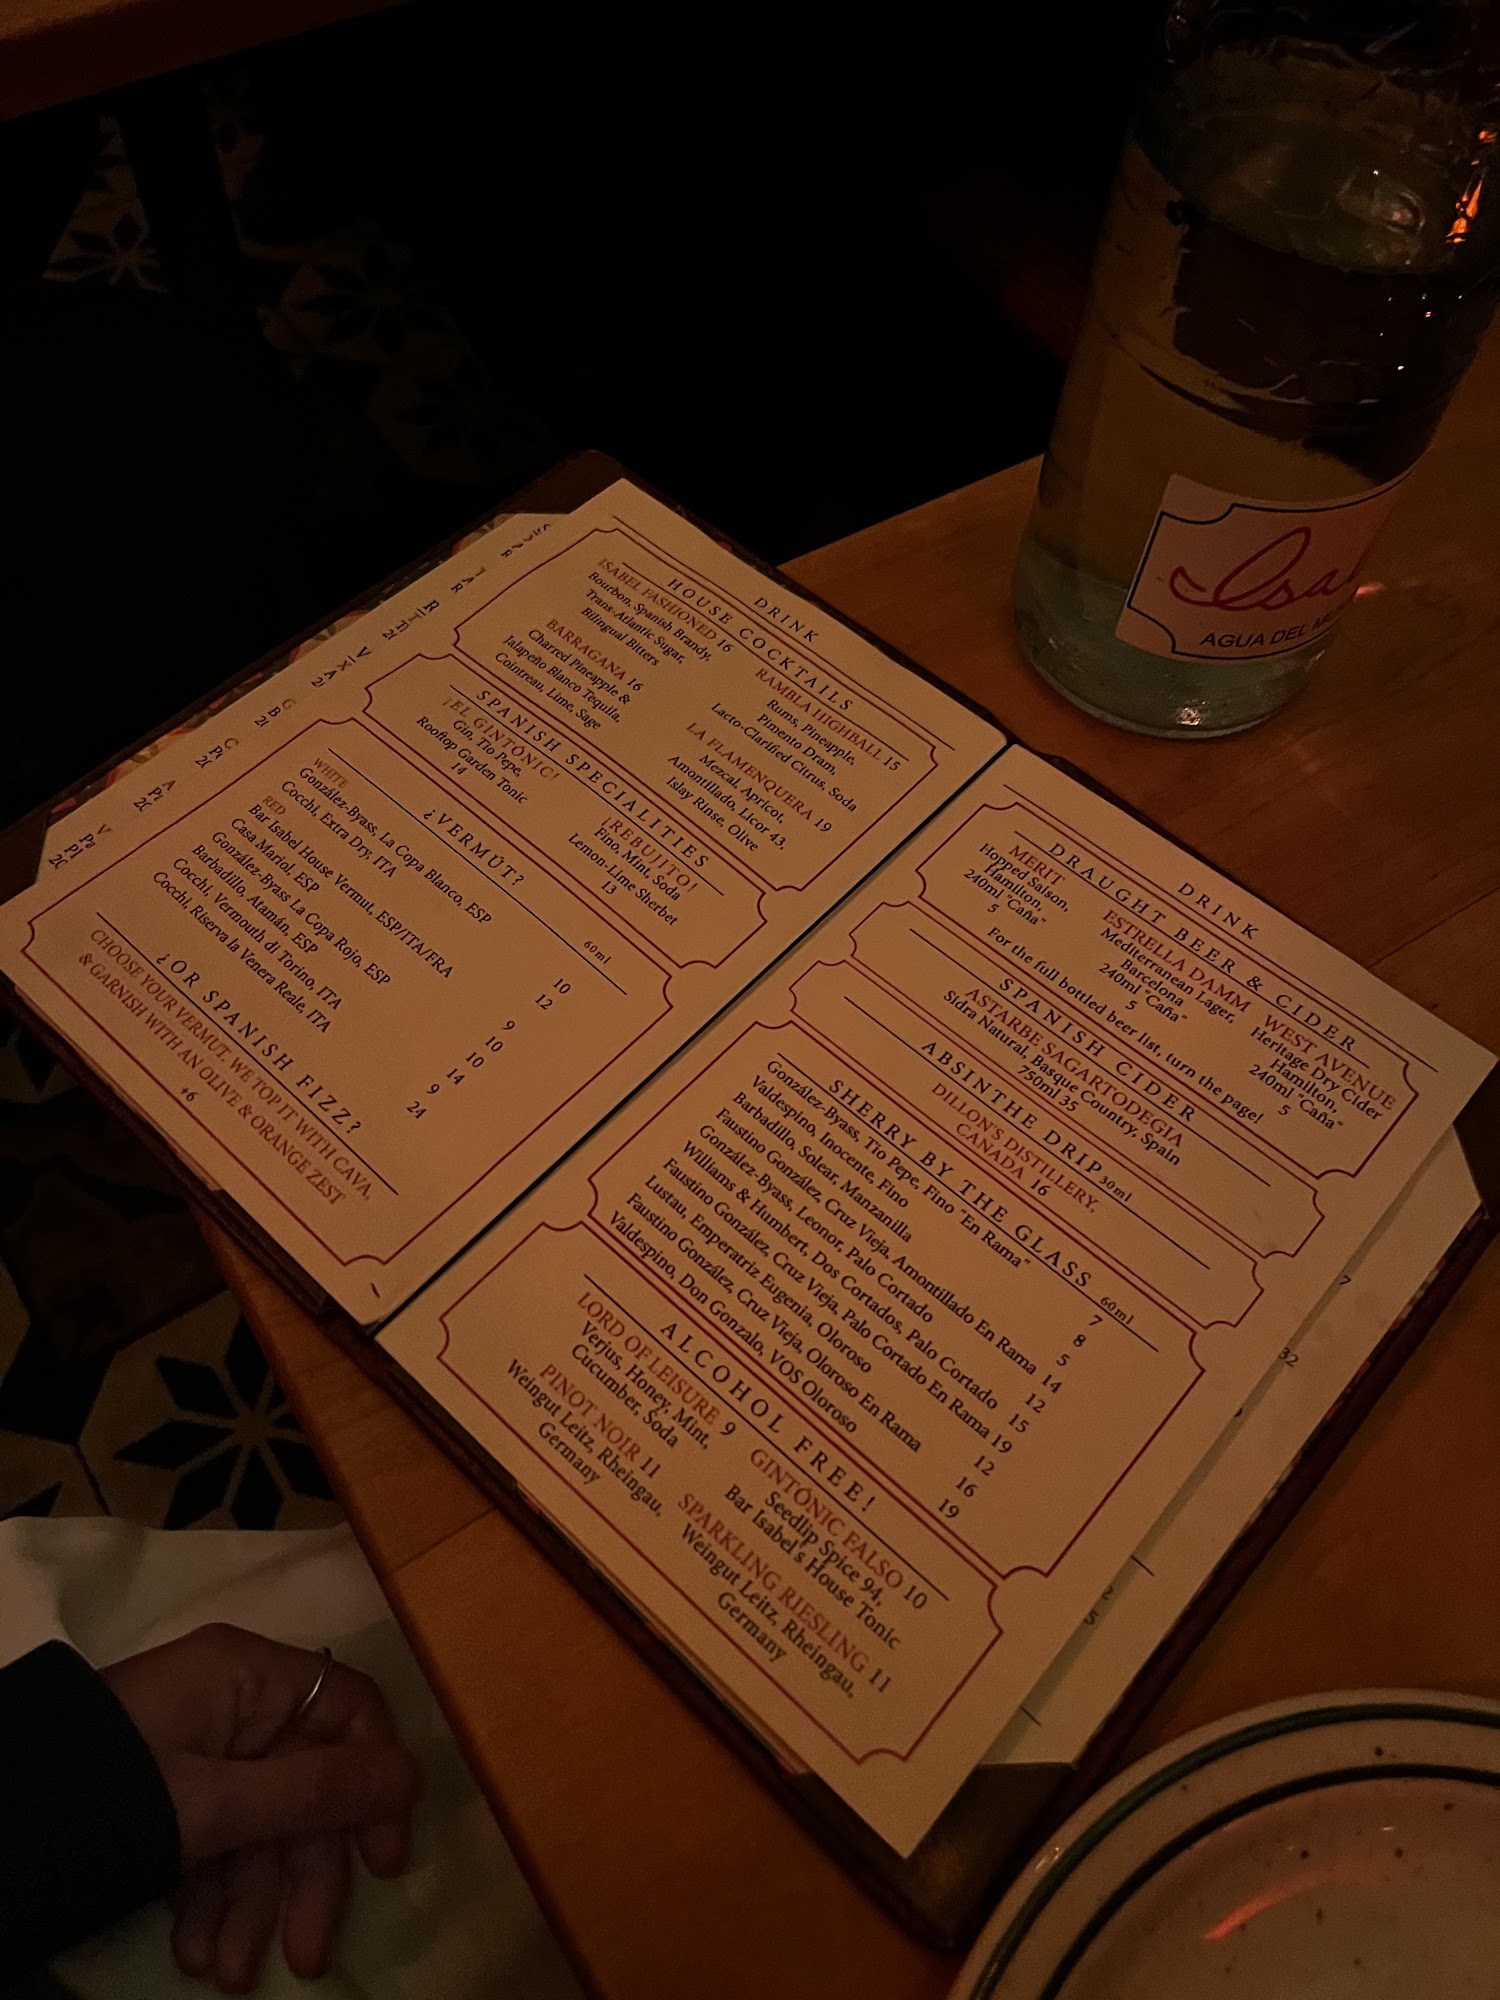 DRINK
HOUSE COCKTAILS
ISABEL FASHIONED 16
Bourbon, Spanish Brandy,
Trans-Atlantic Sugar,
Bilingual Bitters
RAMBLA HIGHBALL 15
Rums, Pineapple,
Pimento Dram,
Lacto-Clarified Citrus, Soda
BARRAGANA 16
Charred Pineapple &
Jalapeño Blanco Tequila,
Cointreau, Lime, Sage
LA FLAMENQUERA 19
Mezcal, Apricot,
Amontillado, Licor 43,
Islay Rinse, Olive
SPANISH SPECIALITIES
¡EL GINTÓNIC!
Gin, Tio Pepe,
Rooftop Garden Tonic
14
¡REBUJITO!
Fino, Mint, Soda
Lemon-Lime Sherbet
13
¿VERMÚT?
60ml
WHITE
González-Byass, La Copa Blanco, ESP 10
Cocchi, Extra Dry, ITA 12
RED
Bar Isabel House Vermut, ESP/ITA/FRA 9
Casa Mariol, ESP 10
González-Byass La Copa Rojo, ESP 10
Barbadillo, Atamán, ESP 14
Cocchi, Vermouth di Torino, ITA 9
Cocchi, Riserva la Venera Reale, ITA 24
¿OR SPANISH FIZZ?
CHOOSE YOUR VERMUT. WE TOP IT WITH CAVA,
& GARNISH WITH AN OLIVE & ORANGE ZEST
+6
DRINK
DRAUGHT BEER & CIDER
MERIT
Hopped Saison,
Hamilton,
240ml "Caña"
5
ESTRELLA DAMM
Mediterranean Lager,
Barcelona
240ml "Caña"
5
WEST AVENUE
Heritage Dry Cider
Hamilton,
240ml "Caña"
5
For the full bottled beer list, turn the page!
SPANISH CIDER
ASTARBE SAGARTODEGIA
Sidra Natural, Basque Country, Spain
750ml 35
ABSINTHE DRIP 30ml
DILLON'S DISTILLERY,
CANADA 16
SHERRY BY THE GLASS
60ml
González-Byass, Tio Pepe, Fino "En Rama" 7
Valdespino, Inocente, Fino 8
Barbadillo, Solear, Manzanilla 5
Faustino González, Cruz Vieja, Amontillado En Rama 14
González-Byass, Leonor, Palo Cortado 12
Williams & Humbert, Dos Cortados, Palo Cortado 15
Faustino González, Cruz Vieja, Palo Cortado En Rama 19
Lustau, Emperatriz Eugenia, Oloroso 12
Faustino González, Cruz Vieja, Oloroso En Rama 16
Valdespino, Don Gonzalo, VOS Oloroso 19
ALCOHOL FREE!
LORD OF LEISURE 9
Verjus, Honey, Mint,
Cucumber, Soda
GINTÓNIC FALSO 10
Seedlip Spice 94,
Bar Isabel's House Tonic
PINOT NOIR 11
Weingut Leitz, Rheingau,
Germany
SPARKLING RIESLING 11
Weingut Leitz, Rheingau,
Germany
7
32
AGUA DEL